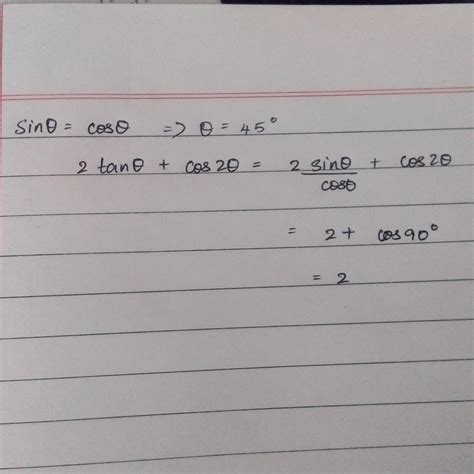 sinθ = cosθ => θ = 45°
2 tanθ + cos2θ = 2 sinθ/cosθ + cos2θ
= 2 + cos90°
= 2